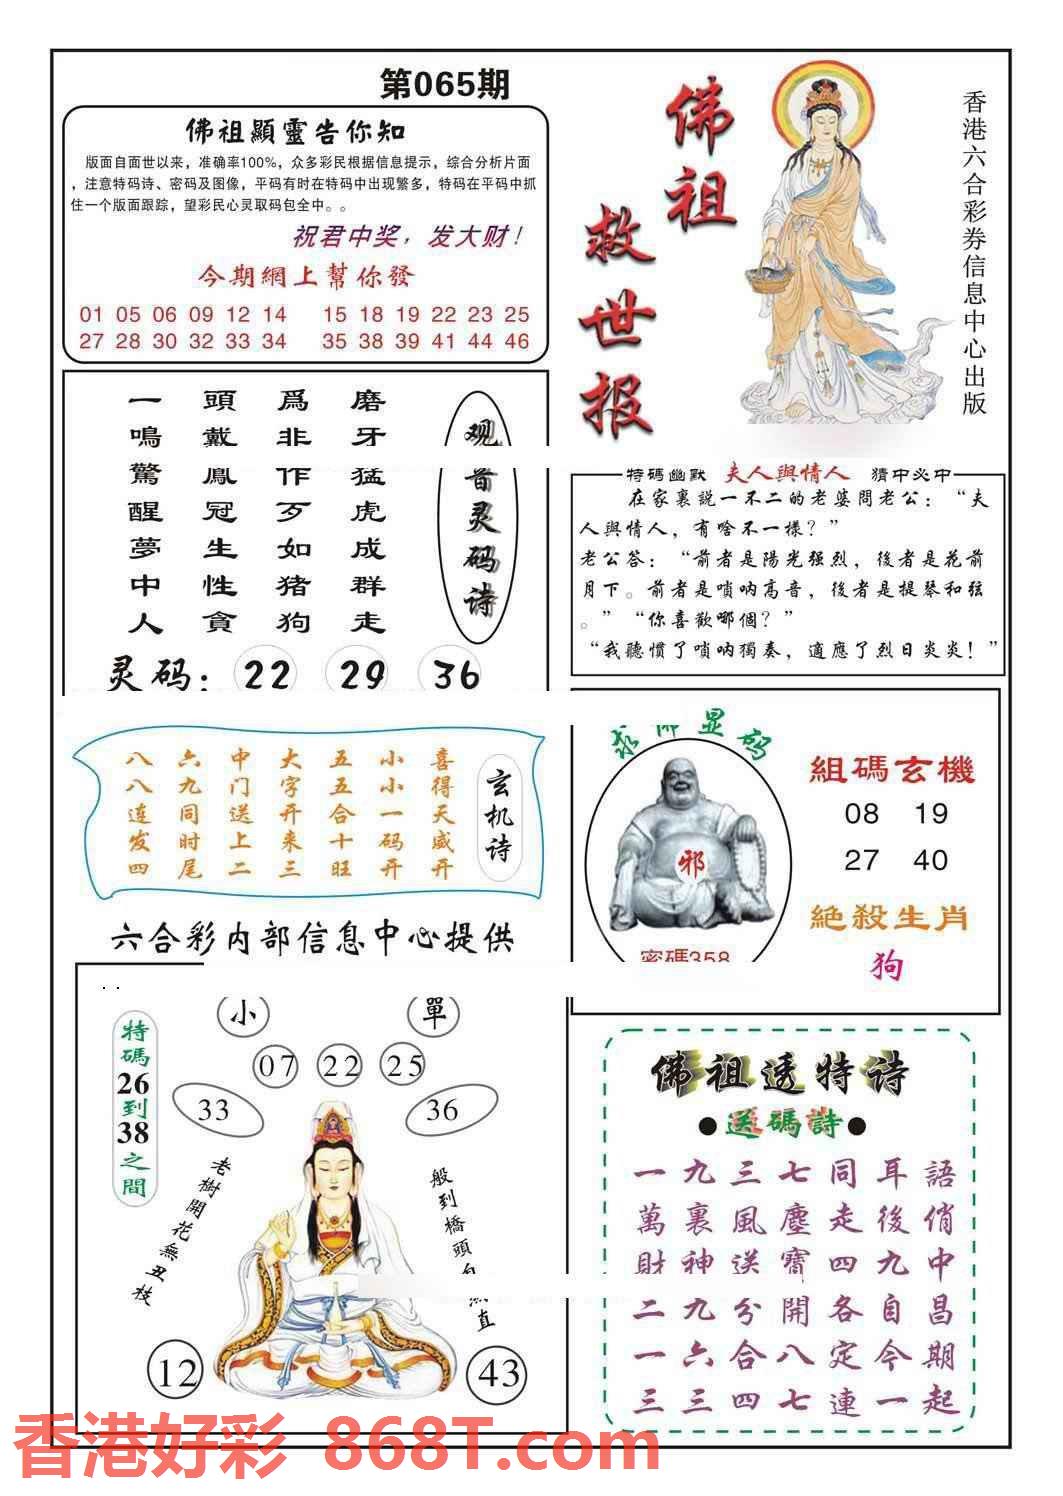 第065期
佛祖顯靈告你知
版面自面世以来，准确率100%，众多彩民根据信息提示，综合分析片面
，注意特码诗、密码及图像，平码有时在特码中出现繁多，特码在平码中抓
住一个版面跟踪，望彩民心灵取码包全中。。
祝君中奖，发大财！
今期網上幫你發
01 05 06 09 12 14 15 18 19 22 23 25
27 28 30 32 33 34 35 38 39 41 44 46
佛祖
救世报
香港六合彩券信息中心出版
观音灵码诗
磨牙猛虎成群走
爲非作歹如猪狗
頭戴鳳冠生性貪
一鳴驚醒夢中人
灵码： 22 29 36
特碼幽默 夫人與情人 猜中必中
在家裏説一不二的老婆問老公：“夫
人與情人，有啥不一樣？”
老公答：“前者是陽光强烈，後者是花前
月下。前者是唢呐高音，後者是提琴和弦
。”“你喜歡哪個？”
“我聽慣了唢呐獨奏，適應了烈日炎炎！”
玄机诗
喜得天威开
小小一码开
五五合十旺
大字开来三
中门送上二
六九同时尾
八八连发四
六合彩内部信息中心提供
求佛显码
邪
密碼358
組碼玄機
08 19
27 40
絕殺生肖
狗
特碼26到38之間
小 單
07 22 25
33 36
老樹開花無丑枝
般到橋頭自
直
12 43
佛祖透特诗
●送碼詩●
一九三七同耳語
萬裏風塵走後俏
財神送寳四九中
二九分開各自昌
一六合八定今期
三三四七連一起
香港好彩 868T.com